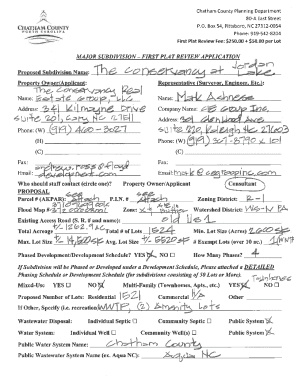 Chatham County Planning Department
80-A East Street
P.O. Box 54, Pittsboro, NC 27312-0054
Phone: 919-542-8204
First Plat Review Fee: $250.00 + $50.00 per Lot
CHATHAM COUNTY
NORTH CAROLINA
MAJOR SUBDIVISION - FIRST PLAT REVIEW APPLICATION
Proposed Subdivision Name: The Conservancy at Jordan Lake
Property Owner/Applicant: Representative (Surveyor, Engineer, Etc.):
The Conservancy Real
Name: Estate Group, LLC Name: Mark Ashness
Address: 341 Kilmayne Drive Company Name: CE Group Inc.
Suite 201, Cary NC 27511 Address: 301 Glenwood Ave
Phone: (W) (919) 460-3027 Suite 220, Raleigh NC 27603
(H) Phone: (W)
(C) (H)
Fax: (C)
Fax:
Email: Email: mark@cegroupinc.com
Who should staff contact (circle one)? Property Owner/Applicant Consultant
PROPOSAL
Parcel # (AKPAR): See Attach P.I.N. # See Attach Zoning District: R-1
Flood Map # Zone: Watershed District:
Existing Access Road (S. R. # and name): Old US 1
Total Acreage: +/- 1262.92 Total # of Lots 1524 Min. Lot Size (Acre)
Max. Lot Size Avg. Lot Size # Exempt Lots (over 10 ac.)
Phased Development/Development Schedule? YES NO How Many Phases? 4
If Subdivision will be Phased or Developed under a Development Schedule, Please attach a DETAILED
Phasing Schedule or Development Schedule (for subdivisions consisting of 50 Lots or More). Townhomes
Mixed-Use: YES NO Multi-Family (Townhomes, Apts., etc.) YES NO
Proposed Number of Lots: Residential 1521 Commercial Other
If Other, Specify (i.e. recreation) WWTP, (2) Amenity Lots
Wastewater Disposal: Individual Septic Community Septic Public System
Water System: Individual Well Community Well(s) Public System
Public Water System Name: Chatham County
Public Wastewater System Name (ex. Aqua NC) Aqua NC